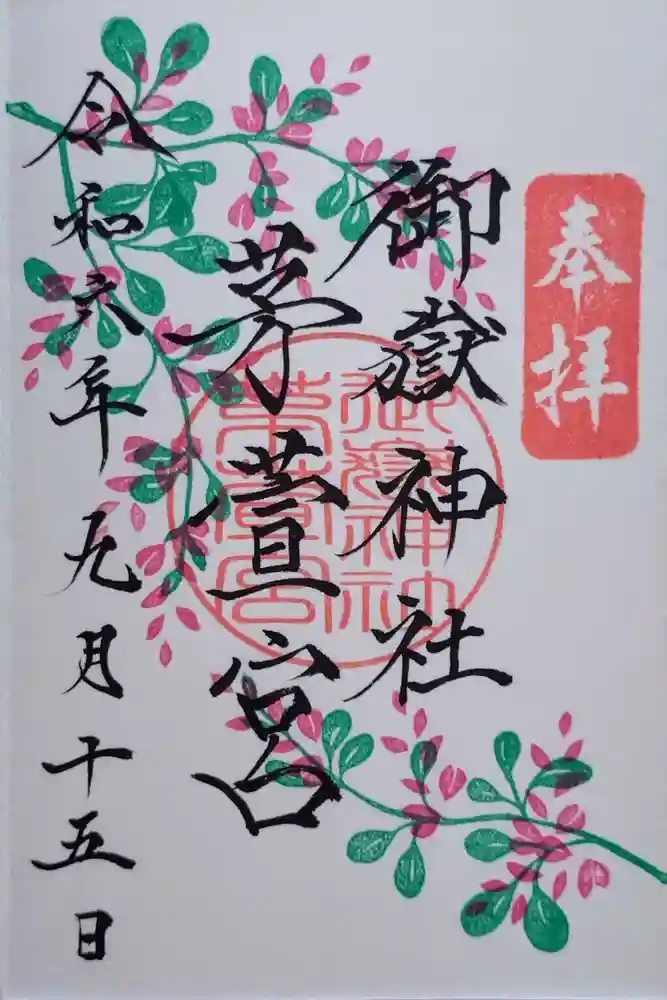 奉拝
御嶽神社
茅萱宮
御嶽神社
茅萱宮
令和六年九月十五日